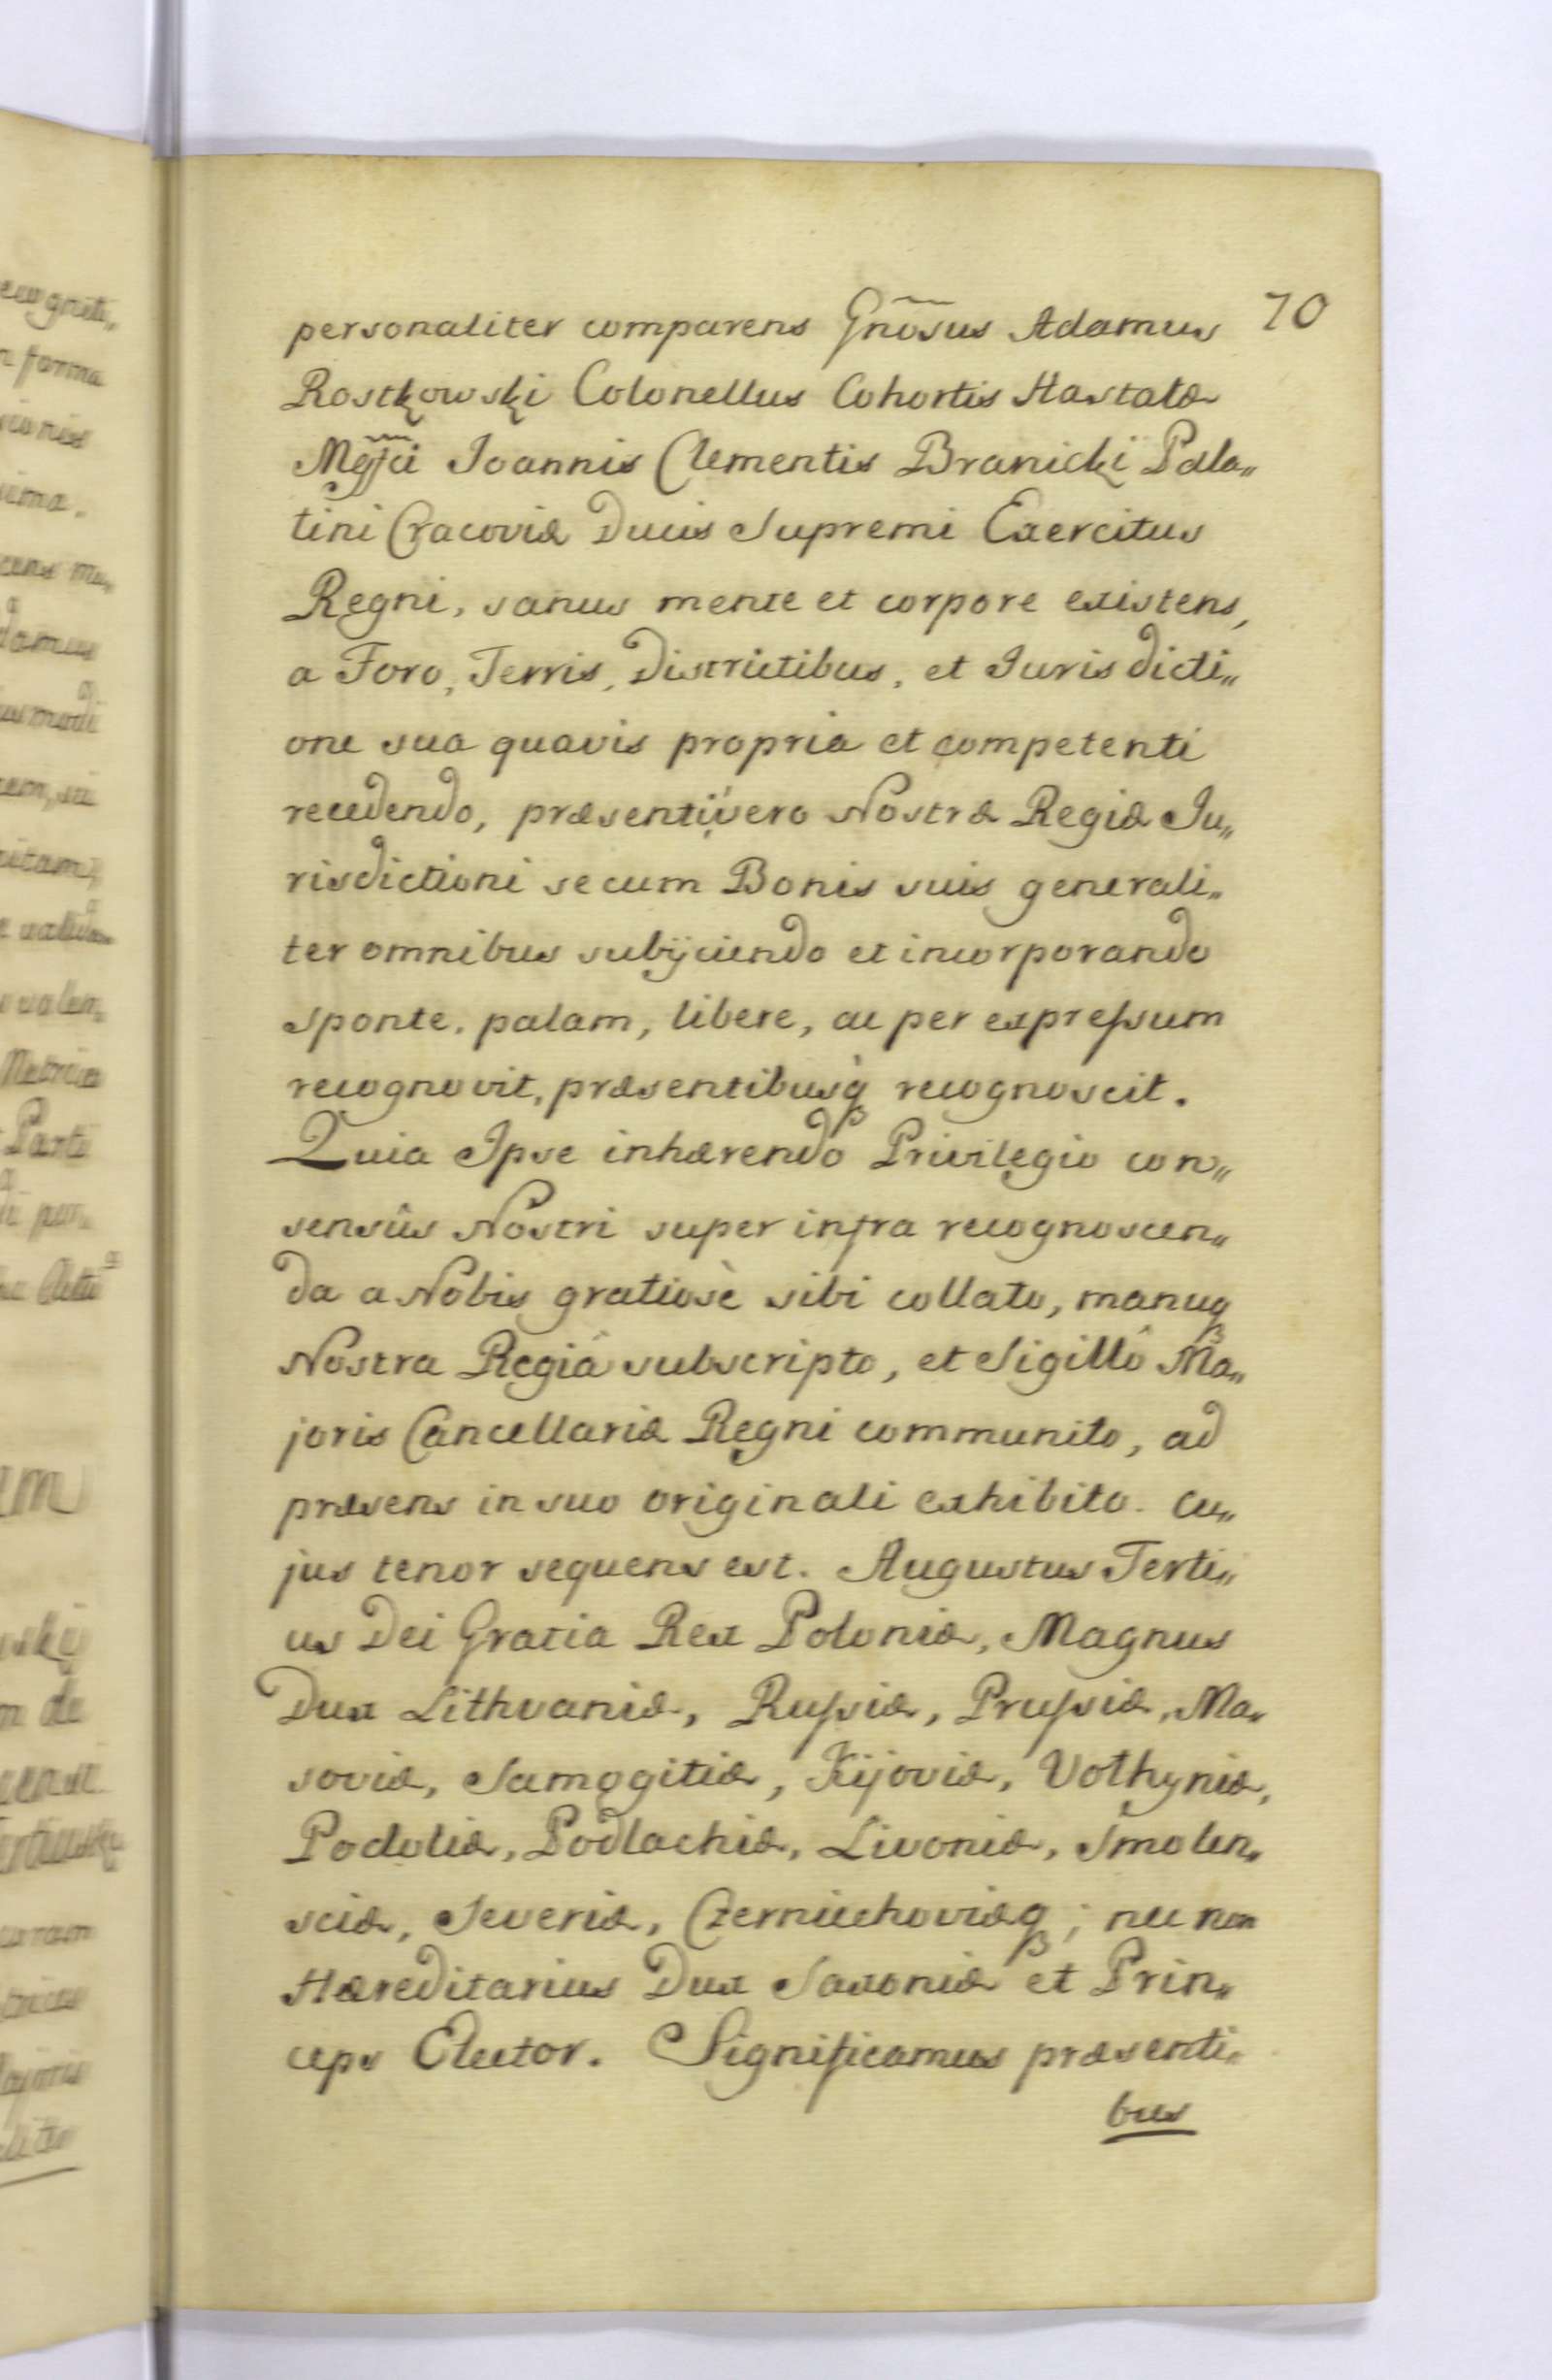 personaliter comparens Gno͠sus Adamus 70
Rostkowski Colonellus Cohortis Hastatæ
Mgf͠ci Joannis Clementis Branicki Pala„
tini Cracoviæ Ducis Supremi Exercitus
Regni, sanus mente et corpore existens,
a Foro, Terris, Districtibus, et Jurisdicti„
one sua quavis propria et competenti
recedendo, præsenti vero Nostræ Regiæ Ju„
risdictioni se cum Bonis suis generali„
ter omnibus subijciendo et incorporando
sponte, palam, libere, ac per expreſsum
recognovit, præsentibusq recognoscit.
Quia Ipse inhærendo Privilegio con„
sensûs Nostri super infra recognoscen„
da a Nobis gratiosè sibi collato, manuq
Nostra Regiâ subscripto, et Sigillô Ma„
joris Cancellariæ Regni communito, ad
præsens in suo originali exhibito. Cu„
jus tenor sequens est. Augustus Terti„
us Dei Gratia Rex Poloniæ, Magnus
Dux Lithvaniæ, Ruſsiæ, Pruſsiæ, Ma„
soviæ, Samogitiæ, Kijoviæ, Volhyniæ,
Podoliæ, Podlachiæ, Livoniæ, Smolen„
sciæ, Severiæ, Czerniechoviæq; nec non
Hæreditarius Dux Saxoniæ et Prin„
ceps Elector. Significamus præsenti„
bus